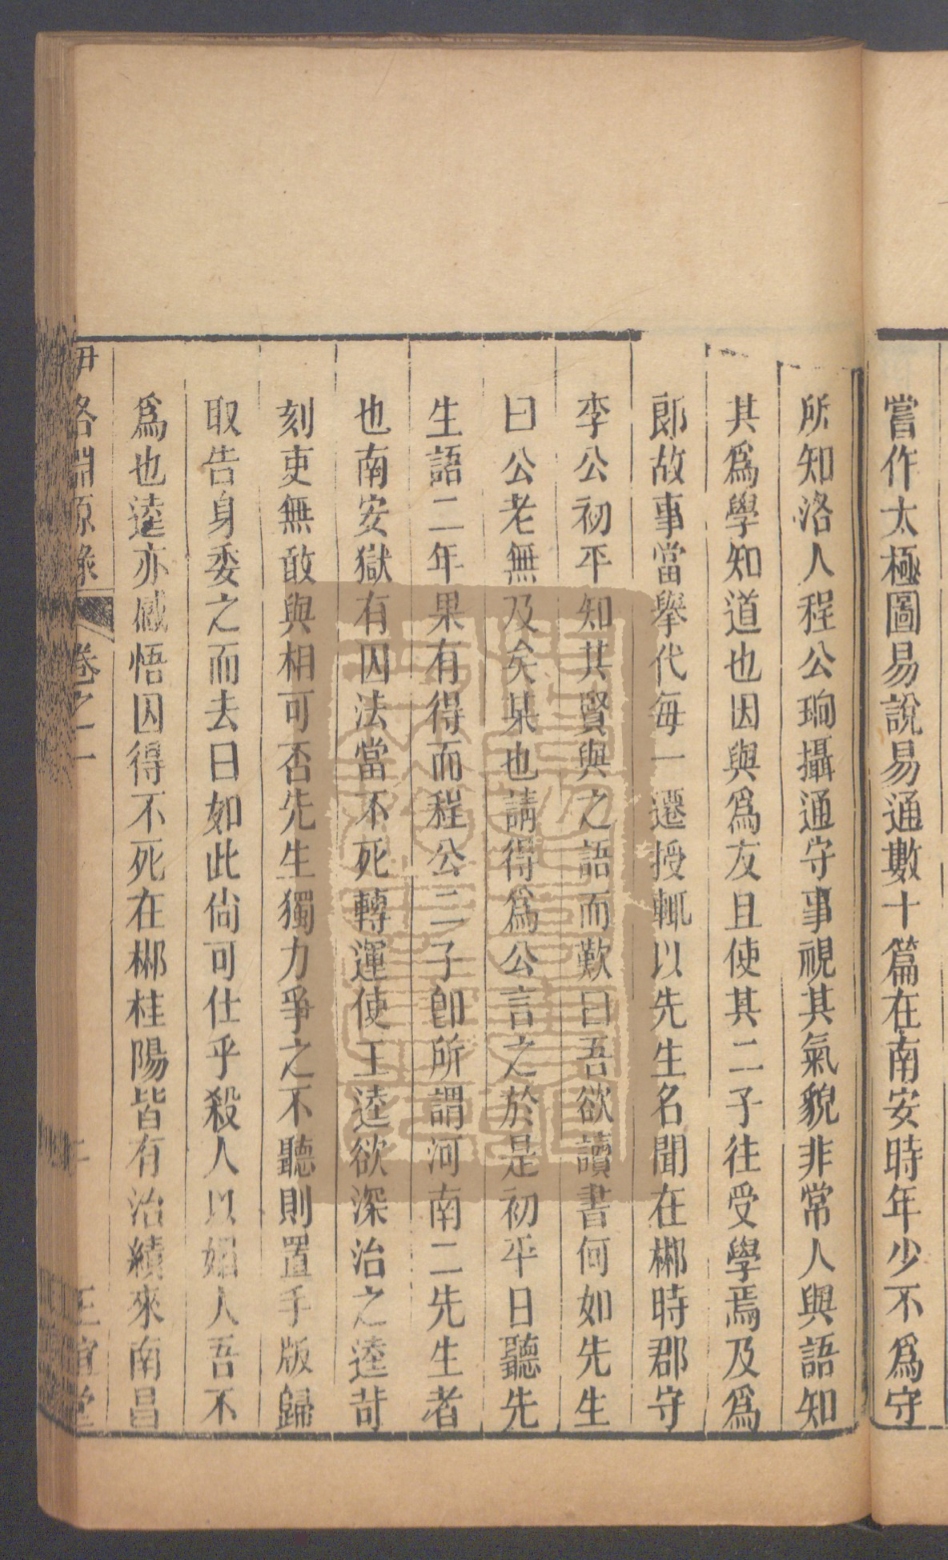 嘗作太極圖易說易通數十篇在南安時年少不爲守
所知洛人程公珦攝通守事視其氣貌非常人與語知
其爲學知道也因與爲友且使其二子往受學焉及爲
郎故事當舉代每一遷授輒以先生名聞在郴時郡守
李公初平知其賢與之語而歎曰吾欲讀書何如先生
曰公老無及矣某也請得爲公言之於是初平日聽先
生語二年果有得而程公二子卽所謂河南二先生者
也南安獄有囚法當不死轉運使王逵欲深治之逵苛
刻吏無敢與相可否先生獨力爭之不聽則置手版歸
取告身委之而去曰如此尙可仕乎殺人以媚人吾不
爲也逵亦感悟囚得不死在郴桂陽皆有治績來南昌
伊洛淵源錄 卷之一 二 正誼堂